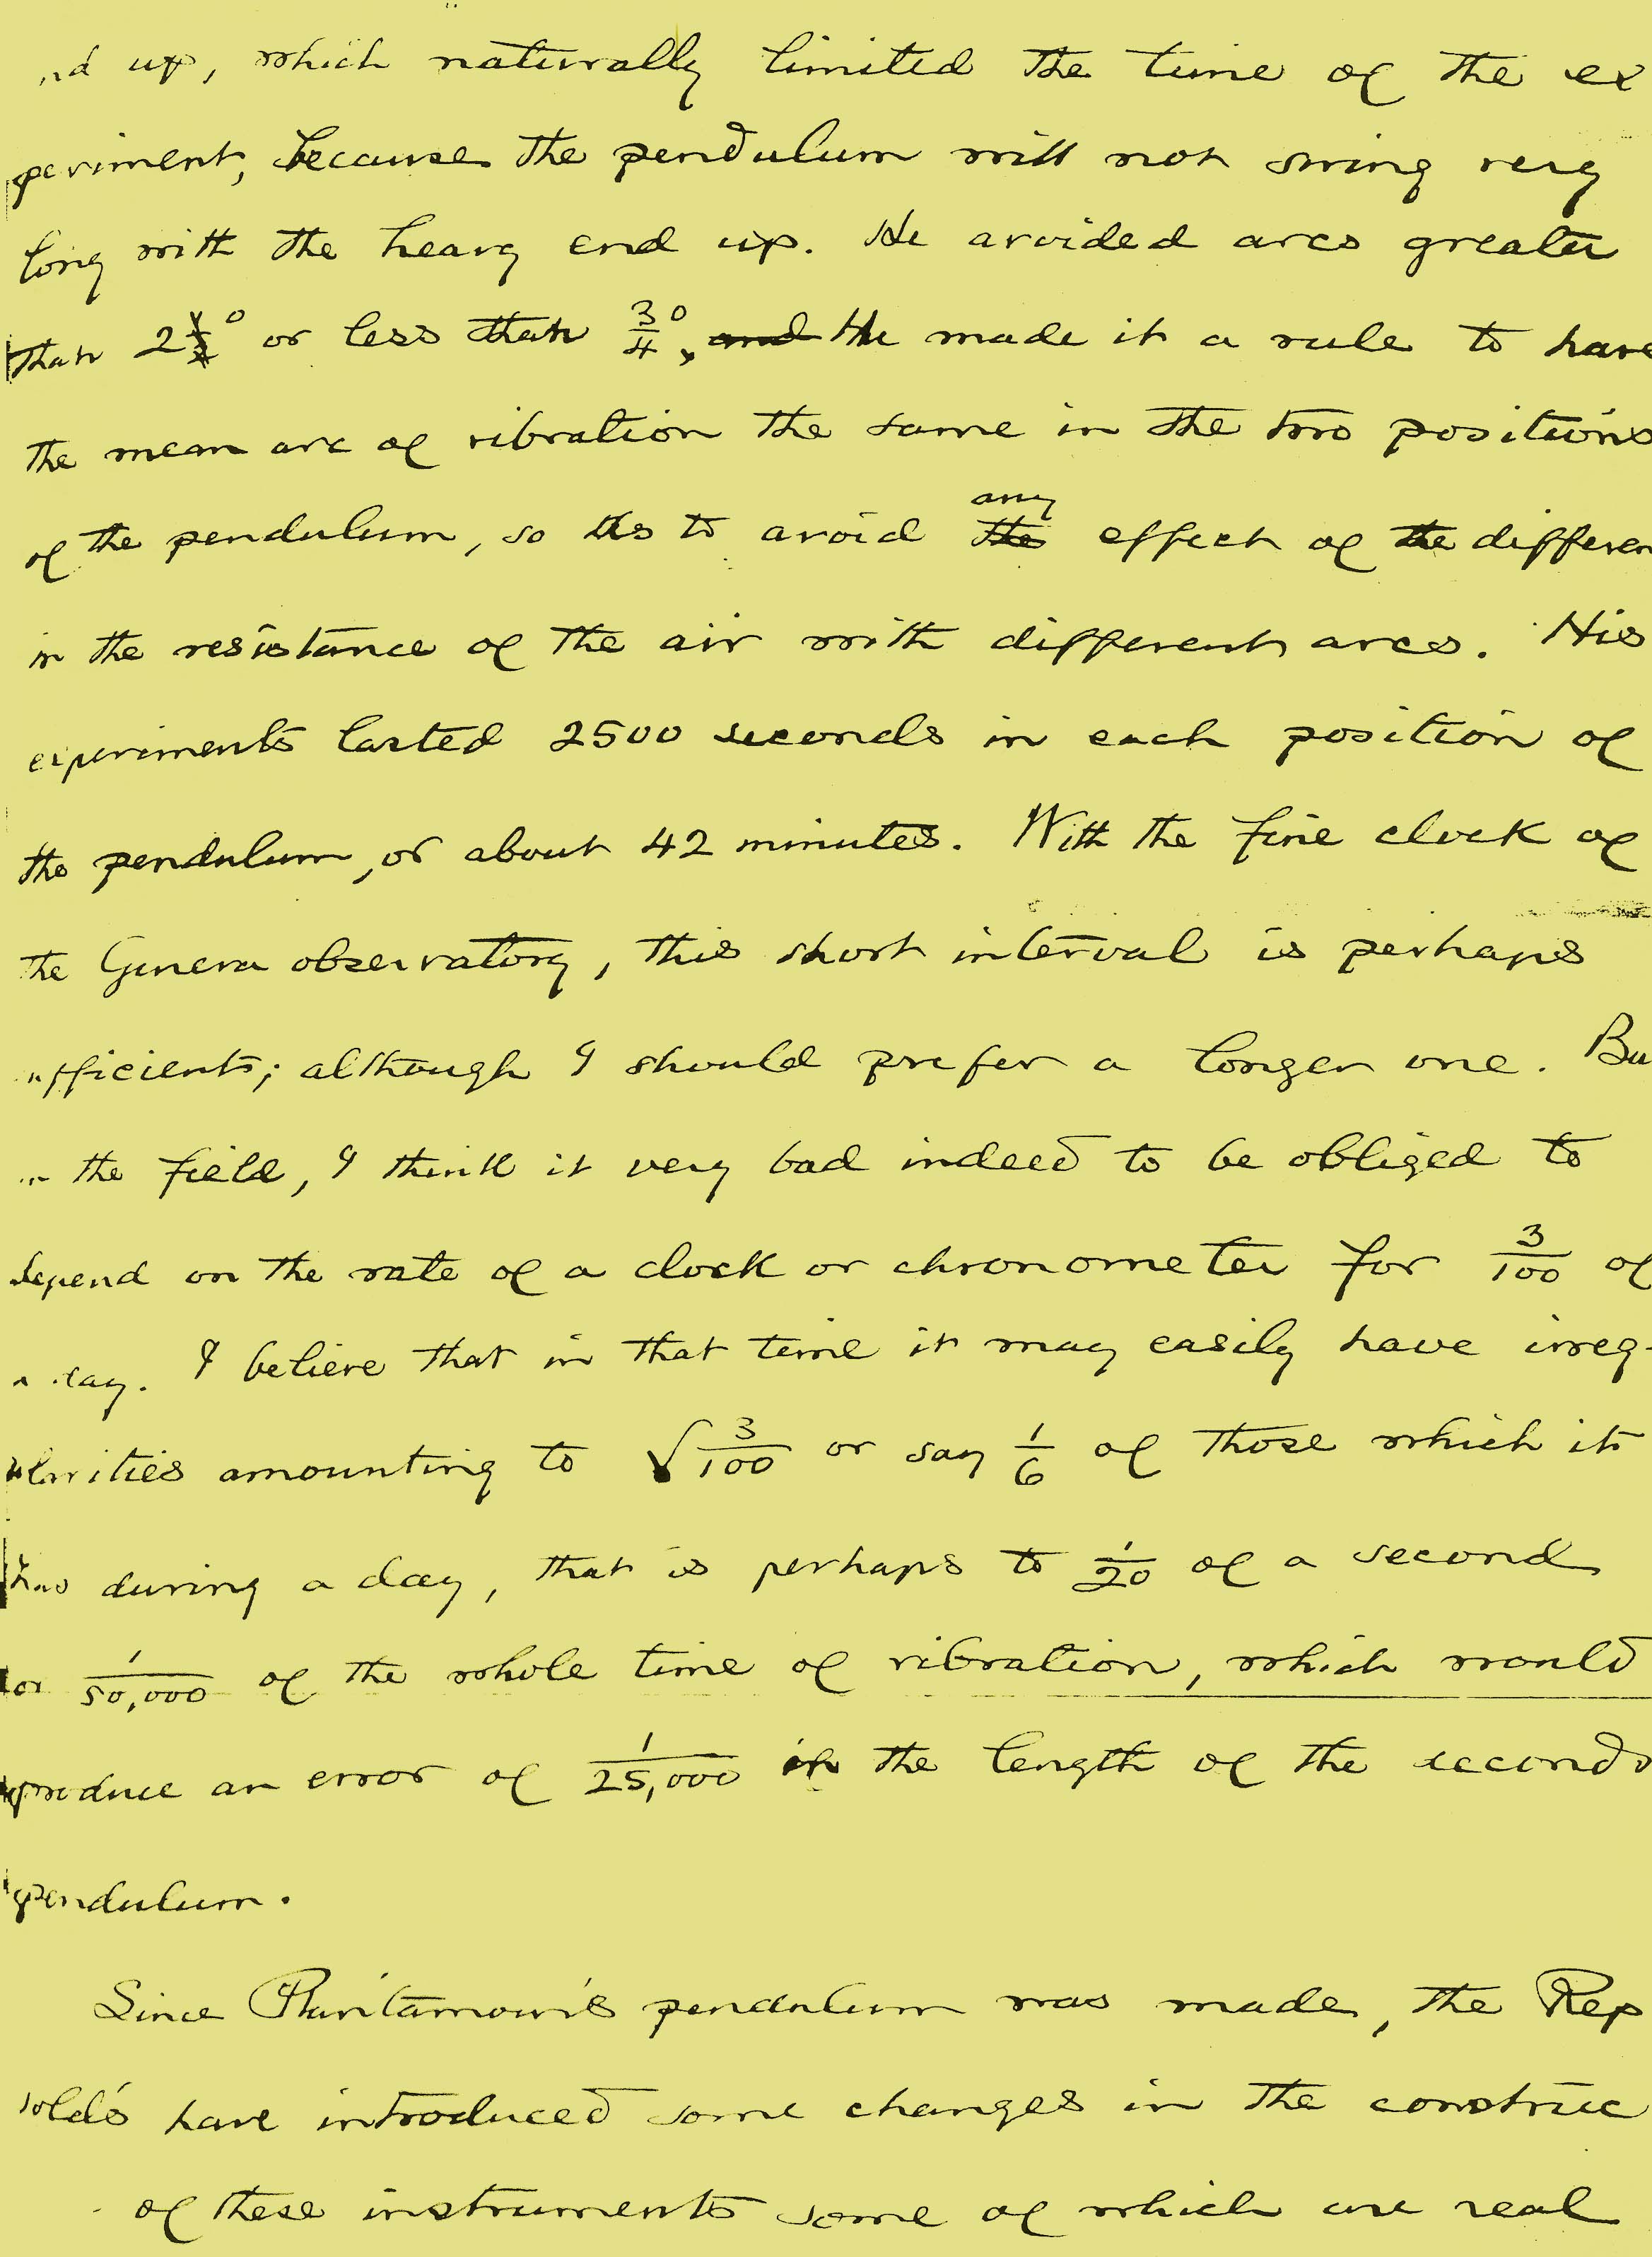 nd up, which naturally limited the time of the ex
periment, because the pendulum will not swing very
long with the heavy end up. He avoided arcs greater
than 2½° or less than ¾°, and He made it a rule to have
the mean arc of vibration the same in the two positions
of the pendulum, so as to avoid the any effect of the differen
in the resistance of the air with different arcs. His
experiments lasted 2500 seconds in each position of
the pendulum, or about 42 minutes. With the fine clock of
the Geneva observatory, this short interval is perhaps
ufficient; although I should prefer a longer one. Bu
the field, I think it very bad indeed to be obliged to
depend on the rate of a clock or chronometer for 3/100 of
a day. I believe that in that time it may easily have irreg-
ularities amounting to √3/100 or say 1/6 of those which it
has during a day, that is perhaps to 1/20 of a second
or 1/50,000 of the whole time of vibration, which would
produce an error of 1/25,000 in the length of the seconds
pendulum.
Since Plantamour's pendulum was made, the Rep
solds have introduced some changes in the construc
of these instruments some of which are real